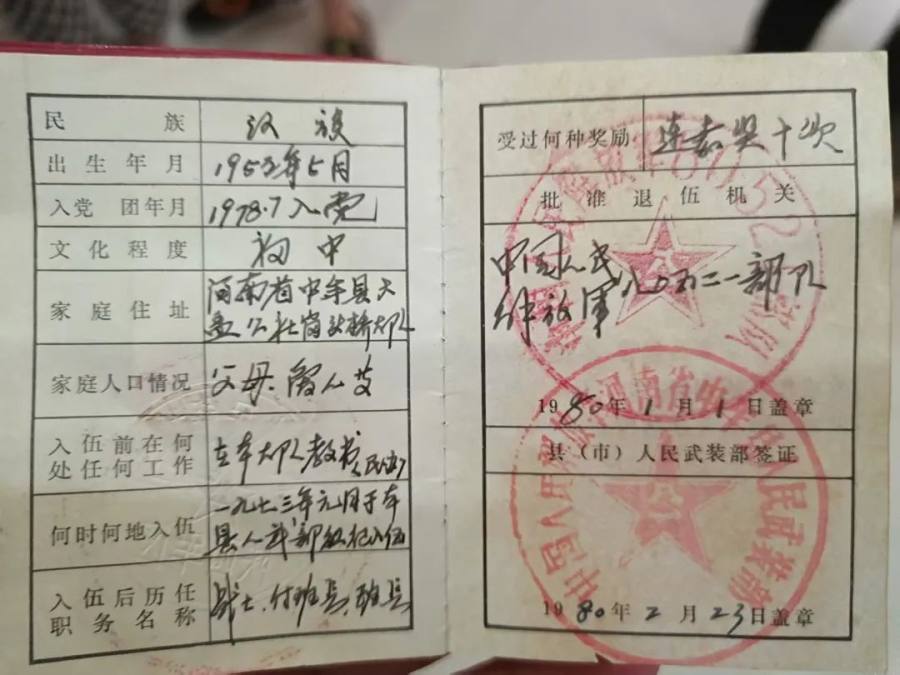 民族 汉族
出生年月 1953年5月
入党 团年月 1978.7入党
文化程度 初中
家庭住址 河南省中牟县大
孟公社岗头桥大队
家庭人口情况 父母
入伍前在何 在本大队教书
处任何工作
何时何地入伍 一九七三年元月于本
县人武部批入伍
入伍后历任 战士、付班长、班长
职务名称
受过何种奖励 连嘉奖十次
批准退伍机关
中国人民
解放军八〇五二一部队
1980年1月1日盖章
县（市）人民武装部签证
1980年2月23日盖章